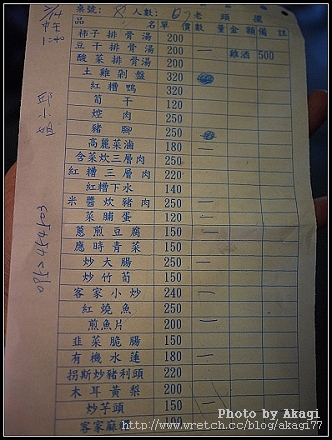 桌號: 8 人數: 老頭擺
品名 單價 數量 金額 備註
柿子排骨湯 200
豆干排骨湯 200 一 雞酒 500
酸菜排骨湯 200
土雞剁盤 320
紅糟鴨 320
筍干 120
焢肉 250
豬腳 250
高麗菜滷 180 一
含菜炆三層肉 250
紅糟三層肉 220
紅糟下水 140
米醬炊豬肉 250 一
菜脯蛋 120 一
蔥煎豆腐 150 一
應時青菜 150 一
炒大腸 250 一
炒竹筍 150
客家小炒 240 一
紅燒魚 250
煎魚片 200 一
韭菜脆腸 150
有機水蓮 180 一
拐斯炒豬利頭 220
木耳黃梨 200
炒芋頭 150 一
客家麻
Photo by Akagi
http://www.wretch.cc/blog/akagi77